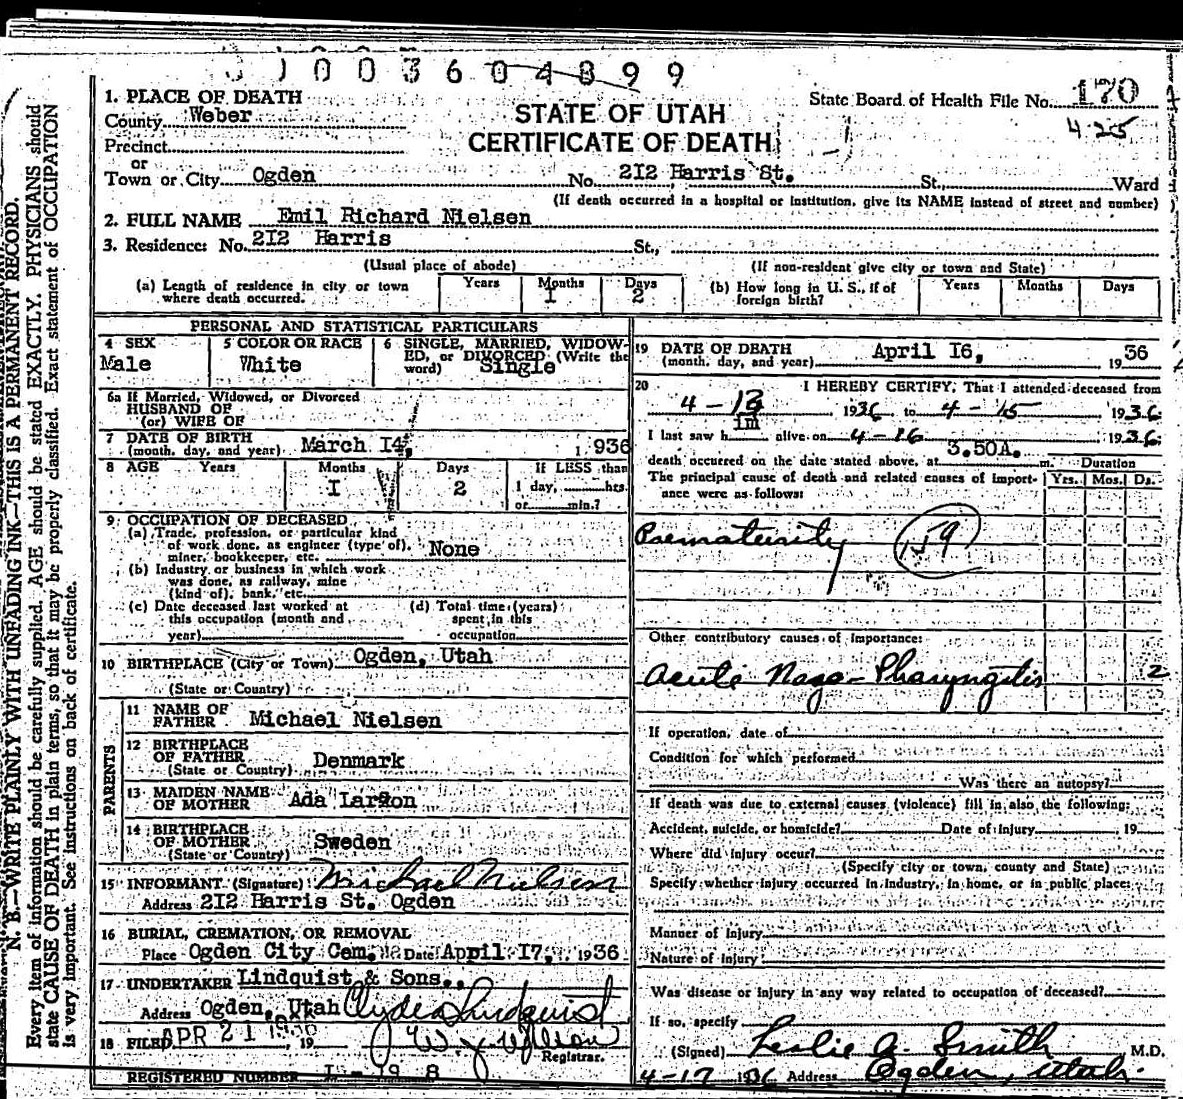 003604899
1. PLACE OF DEATH
County Weber
Precinct
or
Town or City Ogden No. 2I2 Harris St. St., Ward
(If death occurred in a hospital or institution, give its NAME instead of street and number)
STATE OF UTAH
CERTIFICATE OF DEATH
State Board of Health File No. 170
4-25
2. FULL NAME Emil Richard Nielsen
3. Residence: No. 2I2 Harris St.,
(Usual place of abode) (If non-resident give city or town and State)
(a) Length of residence in city or town where death occurred. Years Months I Days 2
(b) How long in U. S., if of foreign birth? Years Months Days
PERSONAL AND STATISTICAL PARTICULARS
4 SEX Male
5 COLOR OR RACE White
6 SINGLE, MARRIED, WIDOW-
ED, or DIVORCED (Write the
word) Single
6a If Married, Widowed, or Divorced
HUSBAND OF
(or) WIFE OF
7 DATE OF BIRTH
(month, day, and year) March I4, 1936
8 AGE Years Months I Days 2 If LESS than
1 day, hrs.
or min.?
9 OCCUPATION OF DECEASED
(a) Trade, profession, or particular kind
of work done, as engineer (type of),
miner, bookkeeper, etc. None
(b) Industry or business in which work
was done, as railway, mine
(kind of), bank, etc.
(c) Date deceased last worked at
this occupation (month and
year)
(d) Total time (years)
spent in this
occupation
10 BIRTHPLACE (City or Town) Ogden, Utah
(State or Country)
PARENTS
11 NAME OF
FATHER Michael Nielsen
12 BIRTHPLACE
OF FATHER Denmark
(State or Country)
13 MAIDEN NAME
OF MOTHER Ada Larson
14 BIRTHPLACE
OF MOTHER Sweden
(State or Country)
15 INFORMANT (Signature) Michael Nielsen
Address 2I2 Harris St. Ogden
16 BURIAL, CREMATION, OR REMOVAL
Place Ogden City Cem. Date April I7, 1936
17 UNDERTAKER Lindquist & Sons.,
Address Ogden, Utah Clyde Lindquist
18 FILED APR 21 1936, 19
Registrar.
REGISTERED NUMBER I-19 8
19 DATE OF DEATH
(month, day, and year) April I6, 1936
20 I HEREBY CERTIFY, That I attended deceased from
4-13 1936 to 4-15 1936
I last saw h im alive on 4-16 1936
death occurred on the date stated above, at 3.50A. m.
The principal cause of death and related causes of import-
ance were as follows:
Duration
Yrs. Mos. Ds.
Prematurity 159
Other contributory causes of importance:
Acute Naso-Pharyngitis 2
If operation, date of
Condition for which performed
Was there an autopsy?
If death was due to external causes (violence) fill in also the following:
Accident, suicide, or homicide? Date of injury , 19
Where did injury occur?
(Specify city or town, county and State)
Specify whether injury occurred in industry, in home, or in public place:
Manner of injury
Nature of injury
Was disease or injury in any way related to occupation of deceased?
If so, specify
(Signed) Leslie A. Smith M.D.
4-17 1936 Address Ogden, Utah.
N. B.—WRITE PLAINLY WITH UNFADING INK—THIS IS A PERMANENT RECORD.
Every item of information should be carefully supplied. AGE should be stated EXACTLY. PHYSICIANS should
state CAUSE OF DEATH in plain terms, so that it may be properly classified. Exact statement of OCCUPATION
is very important. See instructions on back of certificate.